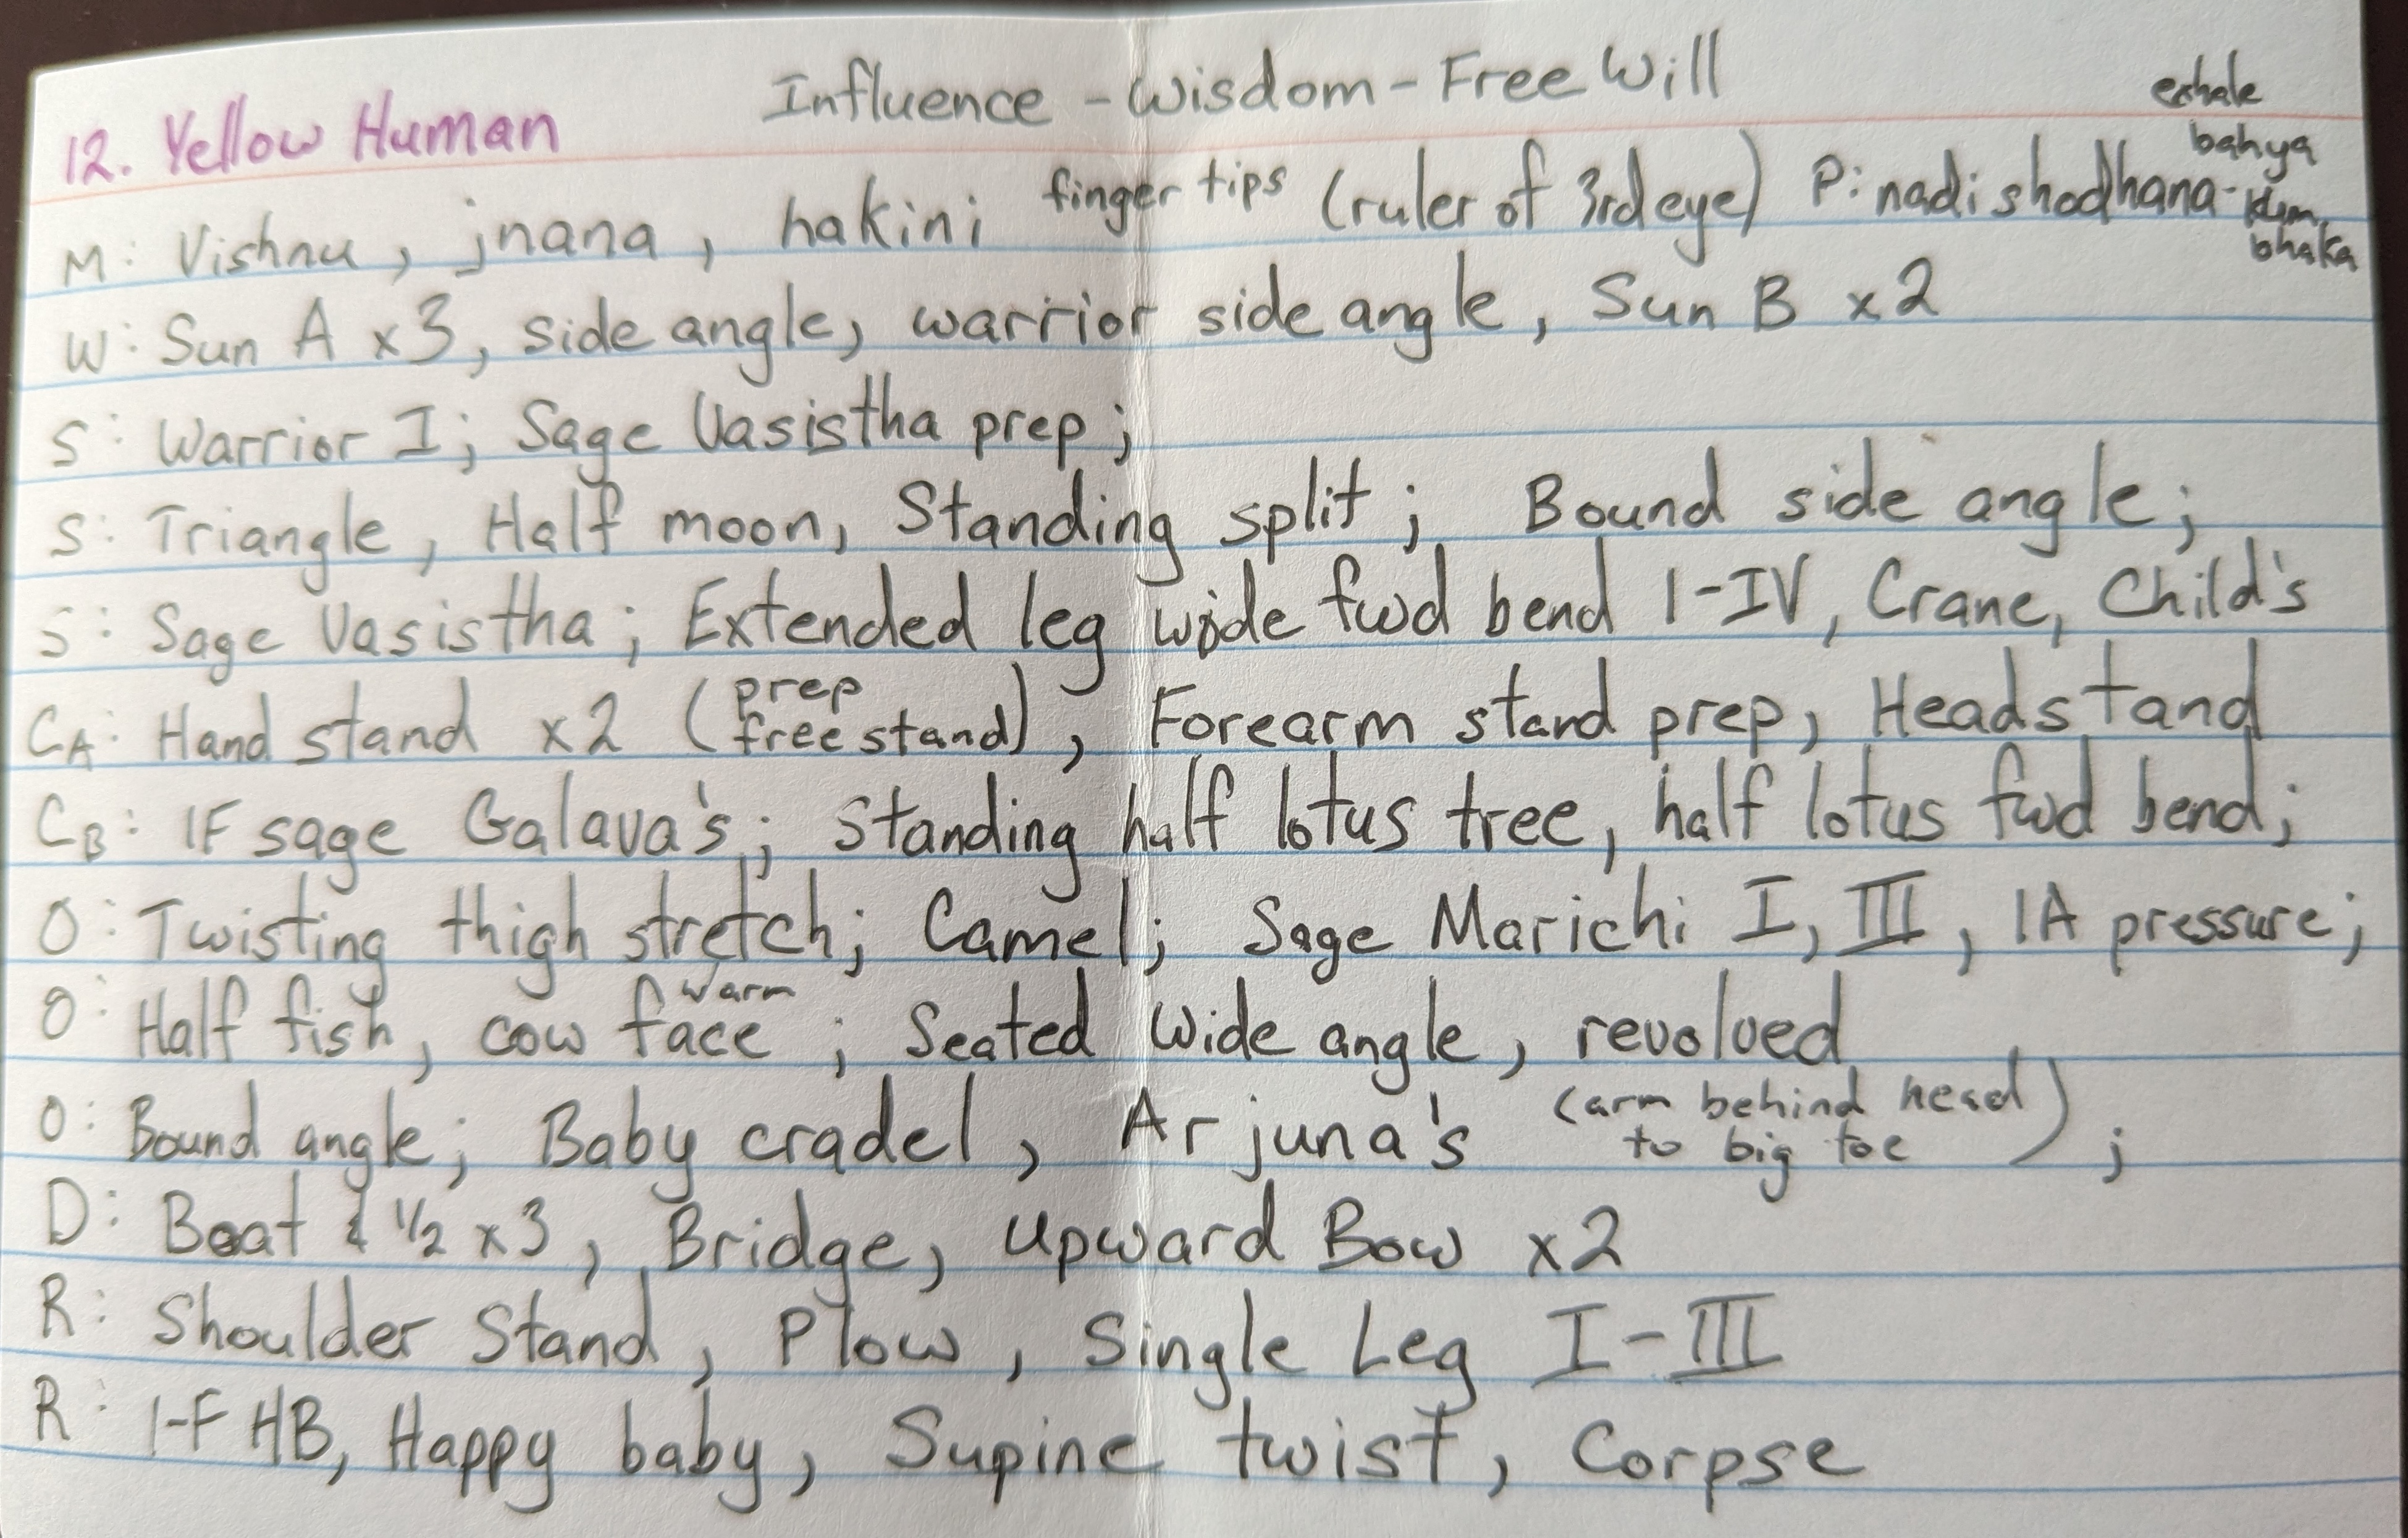 12. Yellow Human Influence - Wisdom - Free Will
M: Vishnu, jnana, hakini finger tips (ruler of 3rd eye) P: nadi shodhana - exhale bahya kumbhaka
W: Sun A x3, side angle, warrior side angle, Sun B x2
S: Warrior I; Sage Vasistha prep;
S: Triangle, Half moon, Standing split; Bound side angle;
S: Sage Vasistha; Extended leg wide fwd bend I-IV, Crane, Child's
CA: Hand stand x2 (prep free stand), Forearm stand prep, Headstand
CB: 1F sage Galava's; Standing half lotus tree, half lotus fwd bend;
O: Twisting thigh stretch; Camel; Sage Marichi I, III, 1A pressure;
O: Half fish, cow face warm; Seated wide angle, revolved
O: Bound angle; Baby cradel, Arjuna's (arm behind head to big toe);
D: Boat & 1/2 x3, Bridge, Upward Bow x2
R: Shoulder Stand, Plow, Single Leg I-III
R: 1-F HB, Happy baby, Supine twist, Corpse